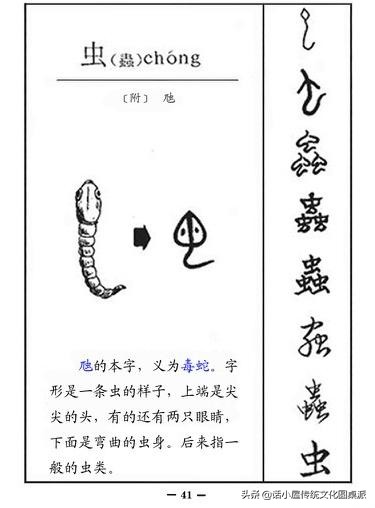 虫(蟲)chóng
〔附〕 虺
虺的本字，义为毒蛇。字
形是一条虫的样子，上端是尖
尖的头，有的还有两只眼睛，
下面是弯曲的虫身。后来指一
般的虫类。
— 41 —
蟲
蟲
蟲
虫
头条@诺小屋传统文化圆桌派